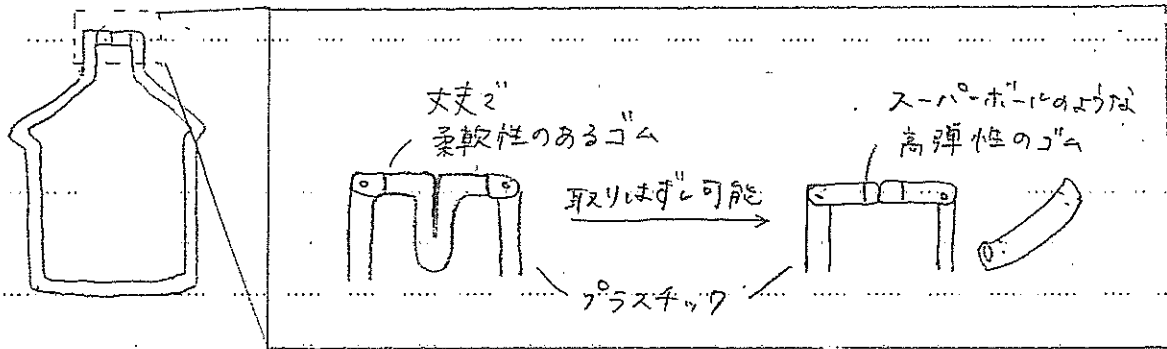 丈夫で
柔軟性のあるゴム
取りはずし可能
スーパーボールのような
高弾性のゴム
プラスチック